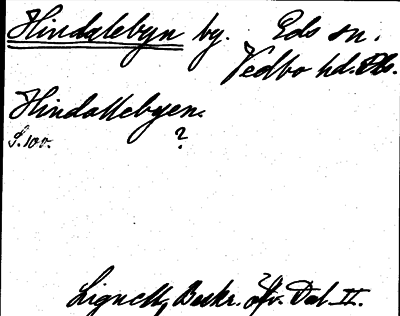 Hindalebyn by. Eds sn.
Vedbo hd. Ds.
Hindallebyen.
S. 100. ?
Lignell, Beskr. öfv. Dal II.